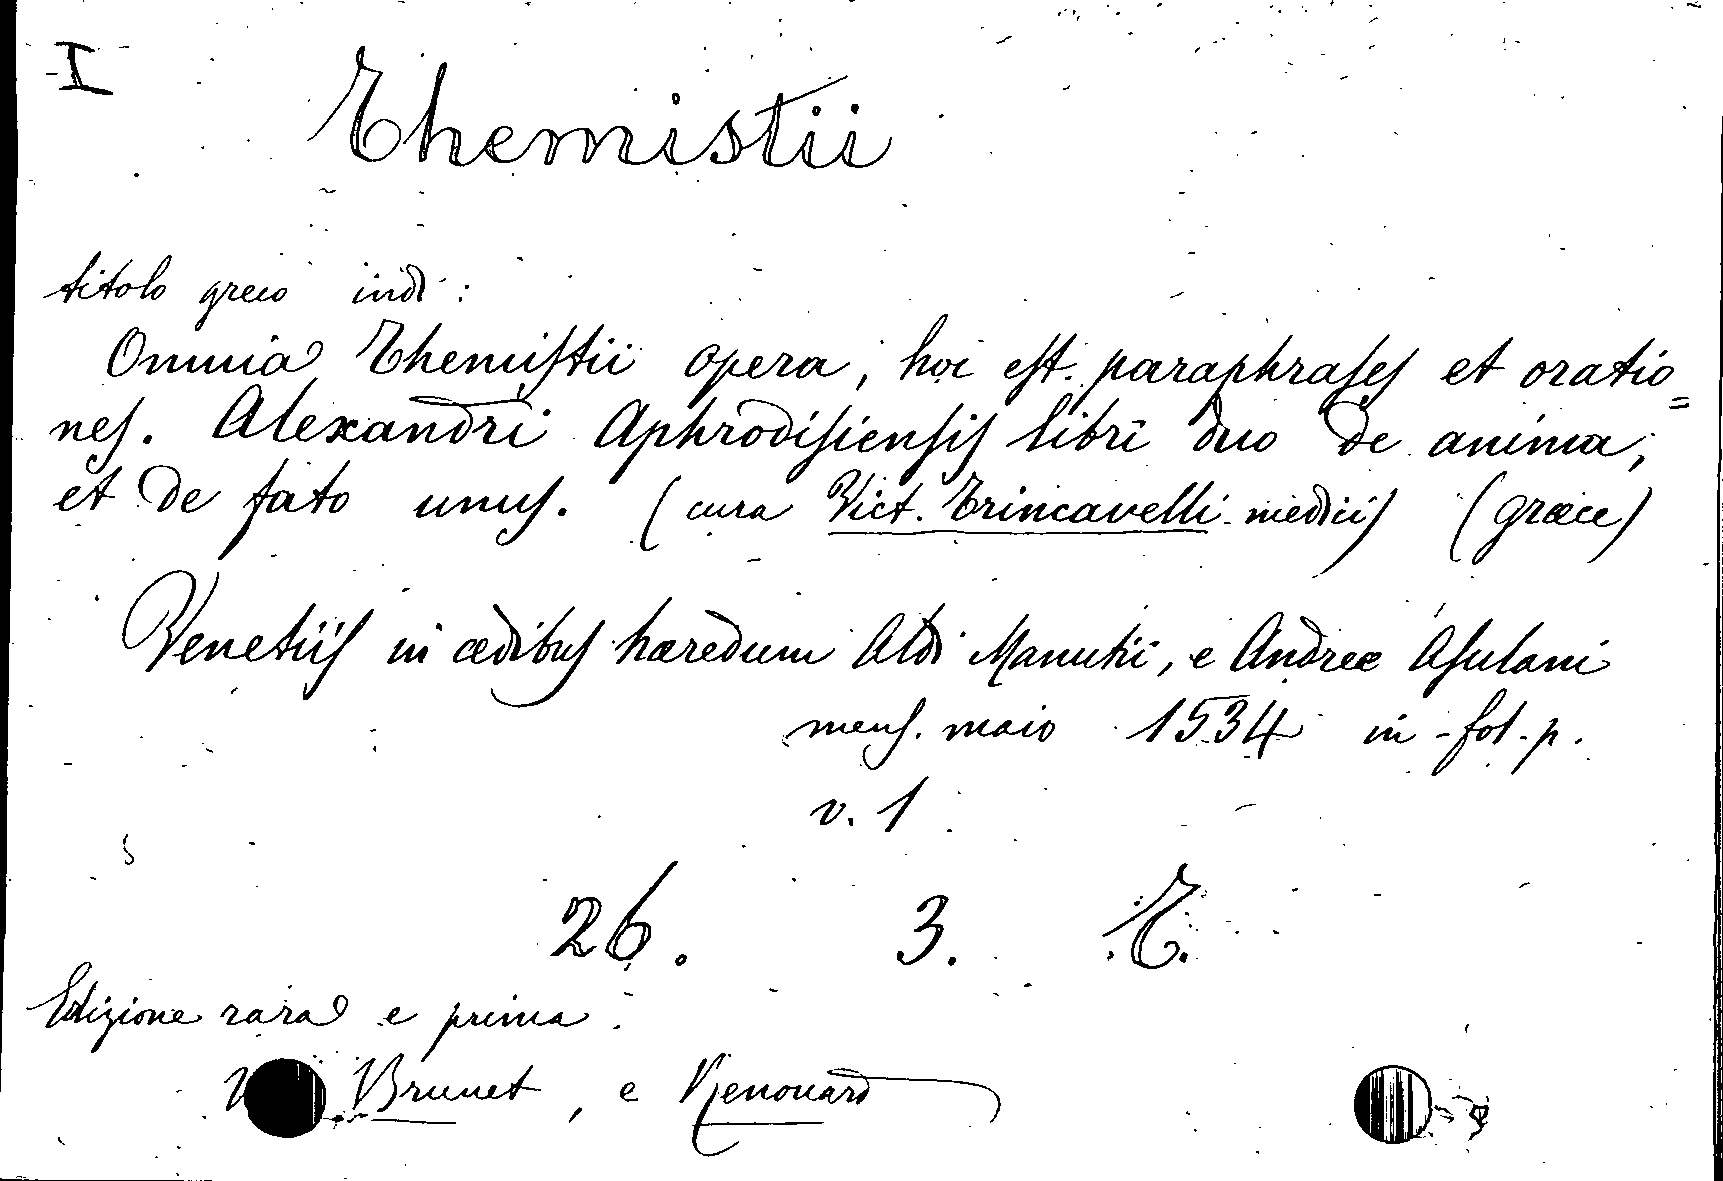 I
Themistii
titolo greco indi :
Omnia Themistii opera, hoi est. paraphrases et oratio=
nes. Alexandri Aphrodisiensis libri duo de anima,
et de fato unus. (cura Vict. Trincavelli medicis) (græce)
Venetiis in ædibus hæredum Aldi Manutii, e Andreæ Asulani
mens. maio 1534 in-fol. p.
v. 1
26. 3. T.
Edizione rara e prima.
Brunet, e Renouard